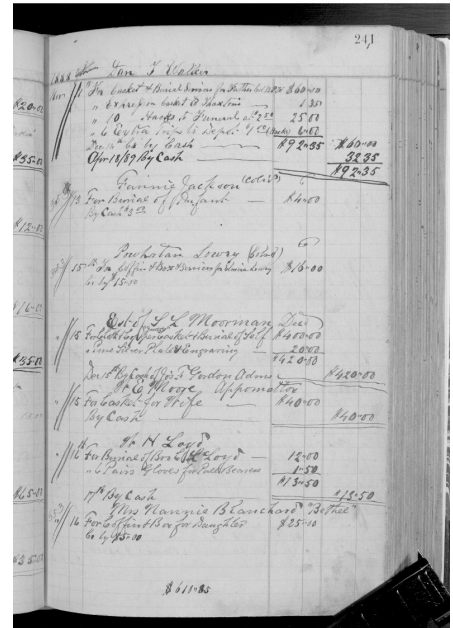 241
1888 Dan T Walden
Nov 11 To Casket & Burial Services for Father $60-00
" Express on casket 1 35
" 10 Hacks to Funeral at 2 50 25 00
" 6 Extra trips to Depot 6-00
Dec 14th Cr by Cash $92-35 $60-00
Apr 18/89 By Cash 32 35
$92-35
Fannie Jackson (Col'd)
13 For Burial of Infant — $4-00
By Cash $3 00
Powhatan Lowry (Col'd)
15 To Coffin & Box & Services for Lowry $16-00
Cr by 15-00
Est of S L Moorman Dec'd
15 For Casket & Burial of Self $400-00
" one Silver Plate & Engraving 20-00
$420-00
Dec 15th By Cash of Jno Gordon Adms $420-00
W E Moore Appomattox
15 For Casket for Wife — $40-00
By Cash — $40-00
W H Loyd
16 For Burial of Bro Loyd — 12-00
" 6 Pairs Gloves for Pall Bearers 1-50
$13-50
17th By Cash $13-50
Mrs Nannie Blanchard "Bethel"
16 For Coffin & Box for Daughter $25-00
Cr by $5-00
$611-85
$20-00
$35-00
$12-00
$16-00
$35-00
$65-00
$35-00